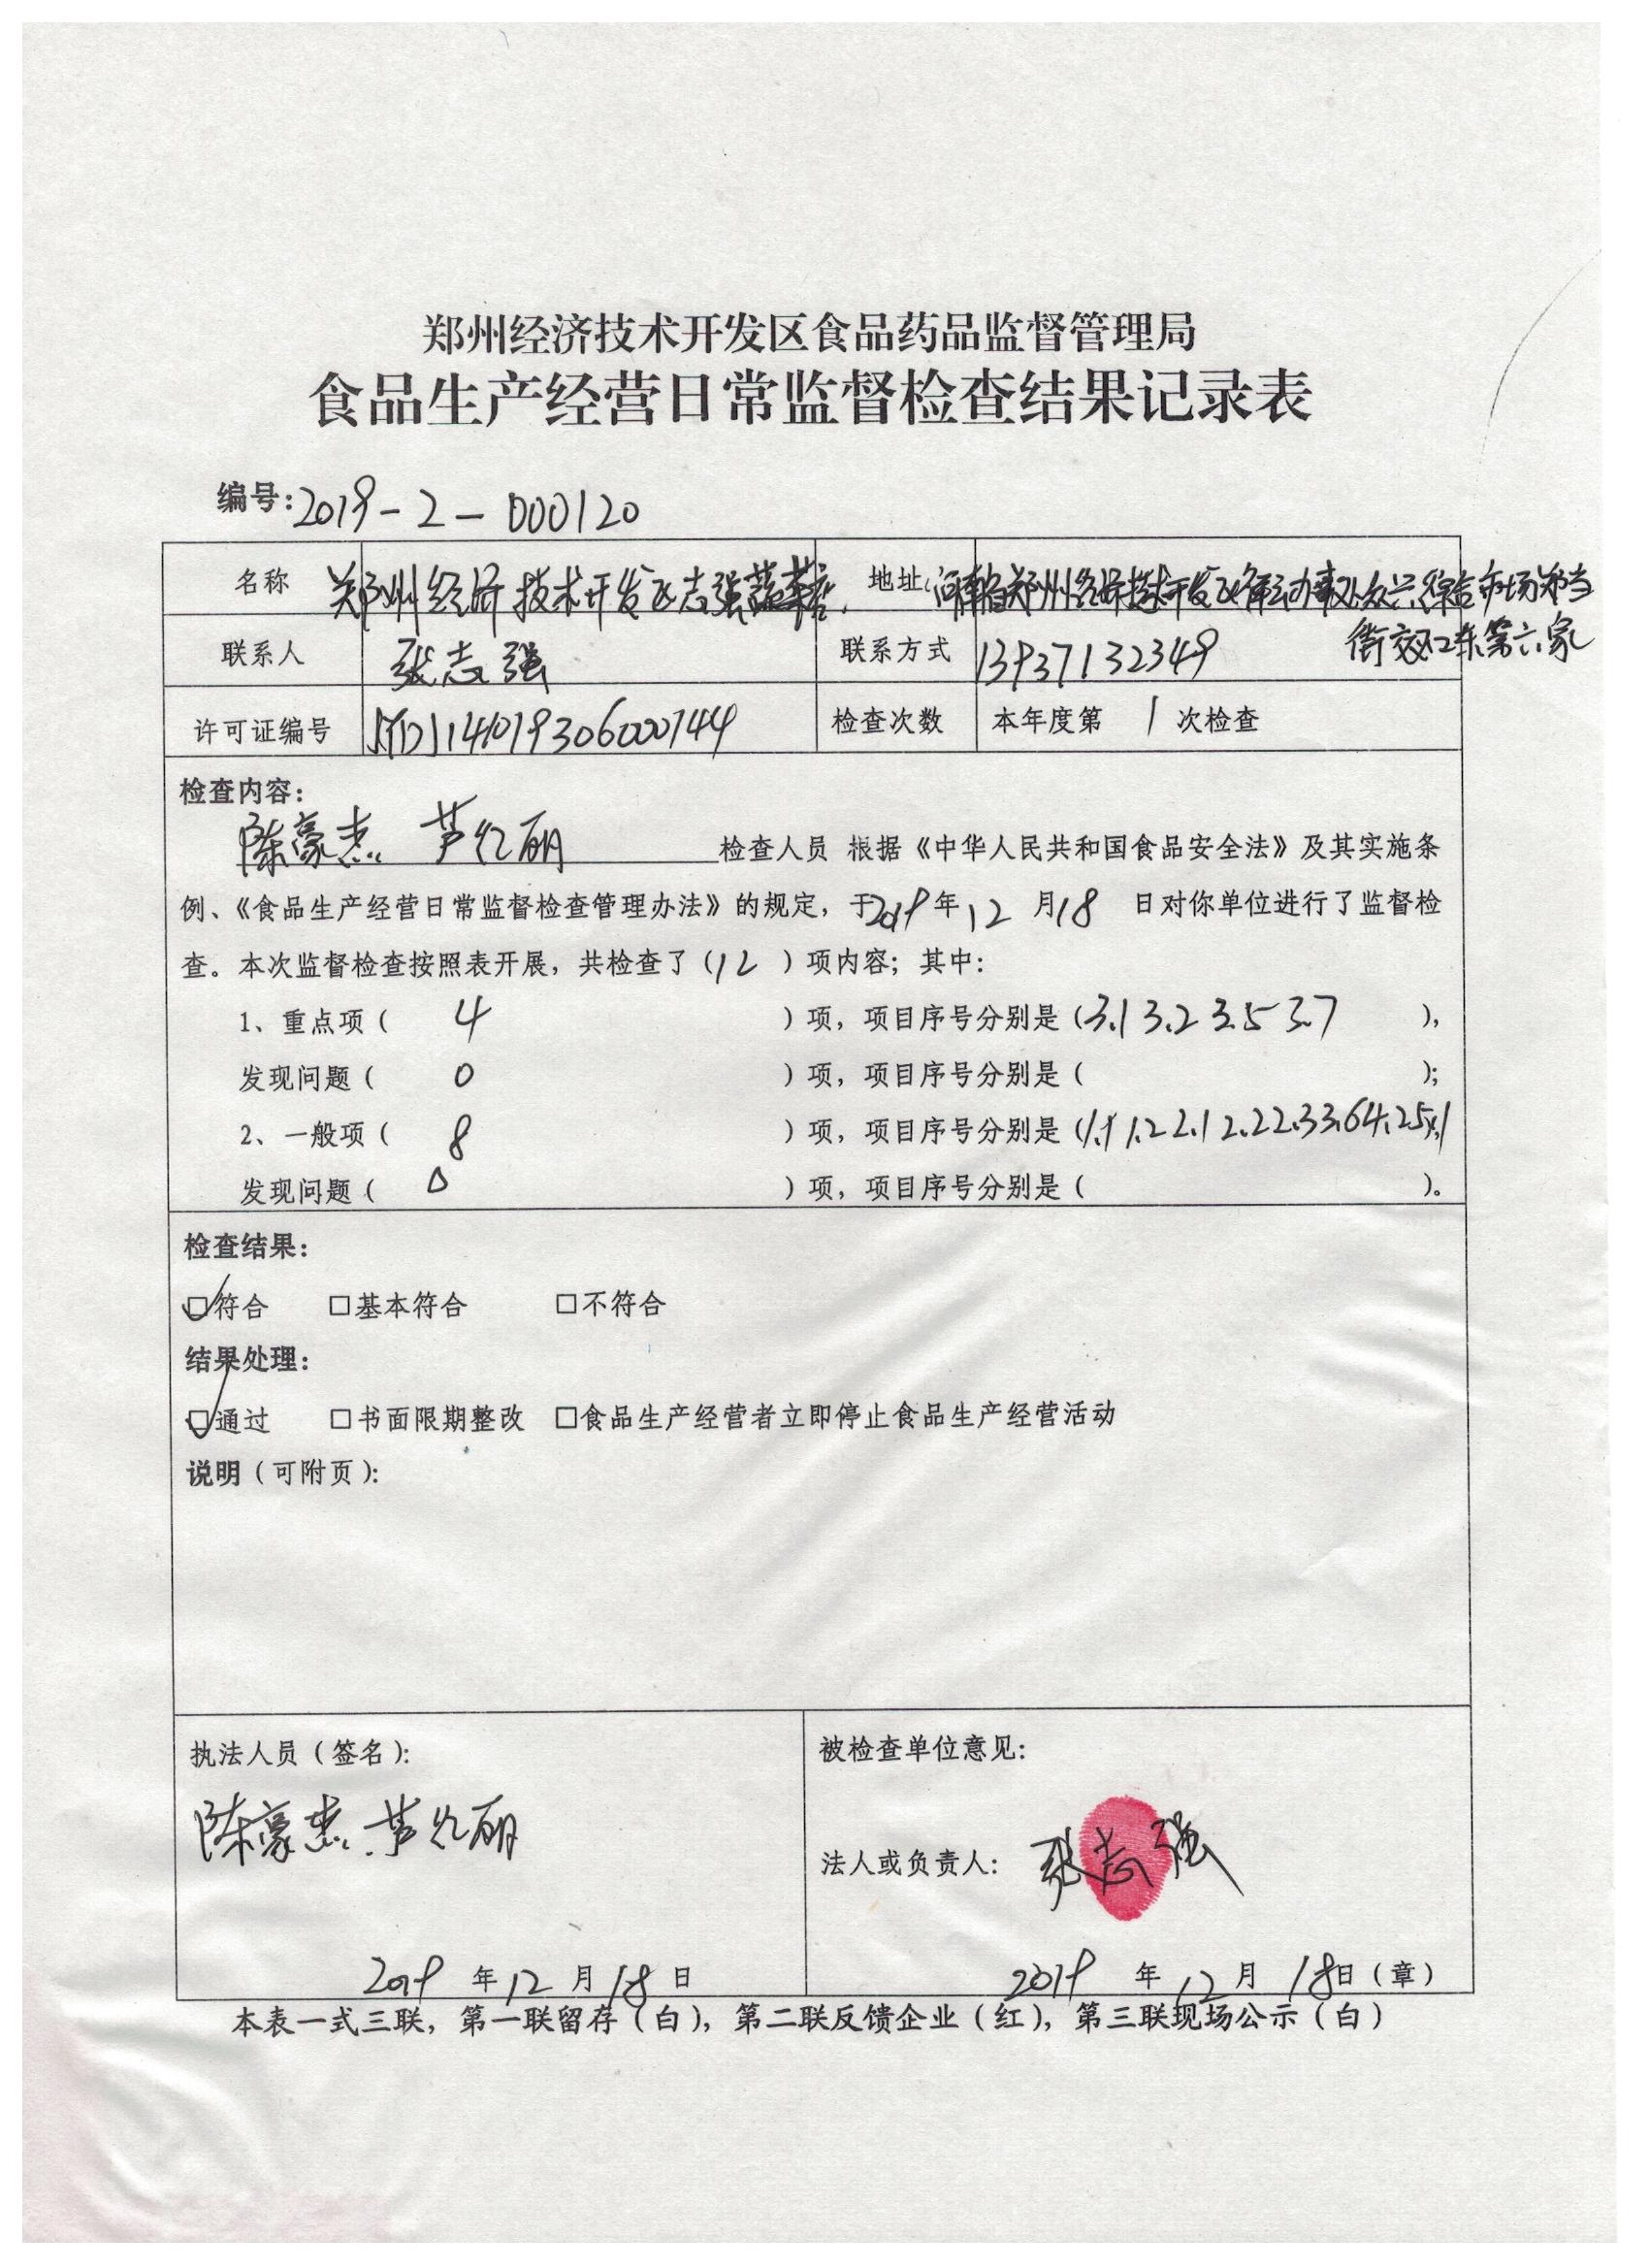 郑州经济技术开发区食品药品监督管理局
食品生产经营日常监督检查结果记录表
编号:2019-2-000120
名称 郑州经济技术开发区志强蔬菜店 地址 河南省郑州经济技术开发区办事处众兴综合市场郑当
街交叉口东第六家
联系人 张志强 联系方式 13937132349
许可证编号 JYD11401930600744 检查次数 本年度第 1 次检查
检查内容:
陈豪杰 芦红丽 检查人员 根据《中华人民共和国食品安全法》及其实施条
例、《食品生产经营日常监督检查管理办法》的规定,于2019年12月18日对你单位进行了监督检
查。本次监督检查按照表开展,共检查了(12)项内容;其中:
1、重点项(4)项,项目序号分别是(3.1 3.2 3.5 3.7),
发现问题(0)项,项目序号分别是( );
2、一般项(8)项,项目序号分别是(1.1 1.2 2.1 2.2 2.3 3.6 4.2 5.1
发现问题(0)项,项目序号分别是( )。
检查结果:
☑符合 □基本符合 □不符合
结果处理:
☑通过 □书面限期整改 □食品生产经营者立即停止食品生产经营活动
说明(可附页):
执法人员(签名): 被检查单位意见:
陈豪杰 芦红丽 法人或负责人: 张志强
2019 年 12 月 18 日 2019 年 12 月 18 日(章)
本表一式三联,第一联留存(白),第二联反馈企业(红),第三联现场公示(白)